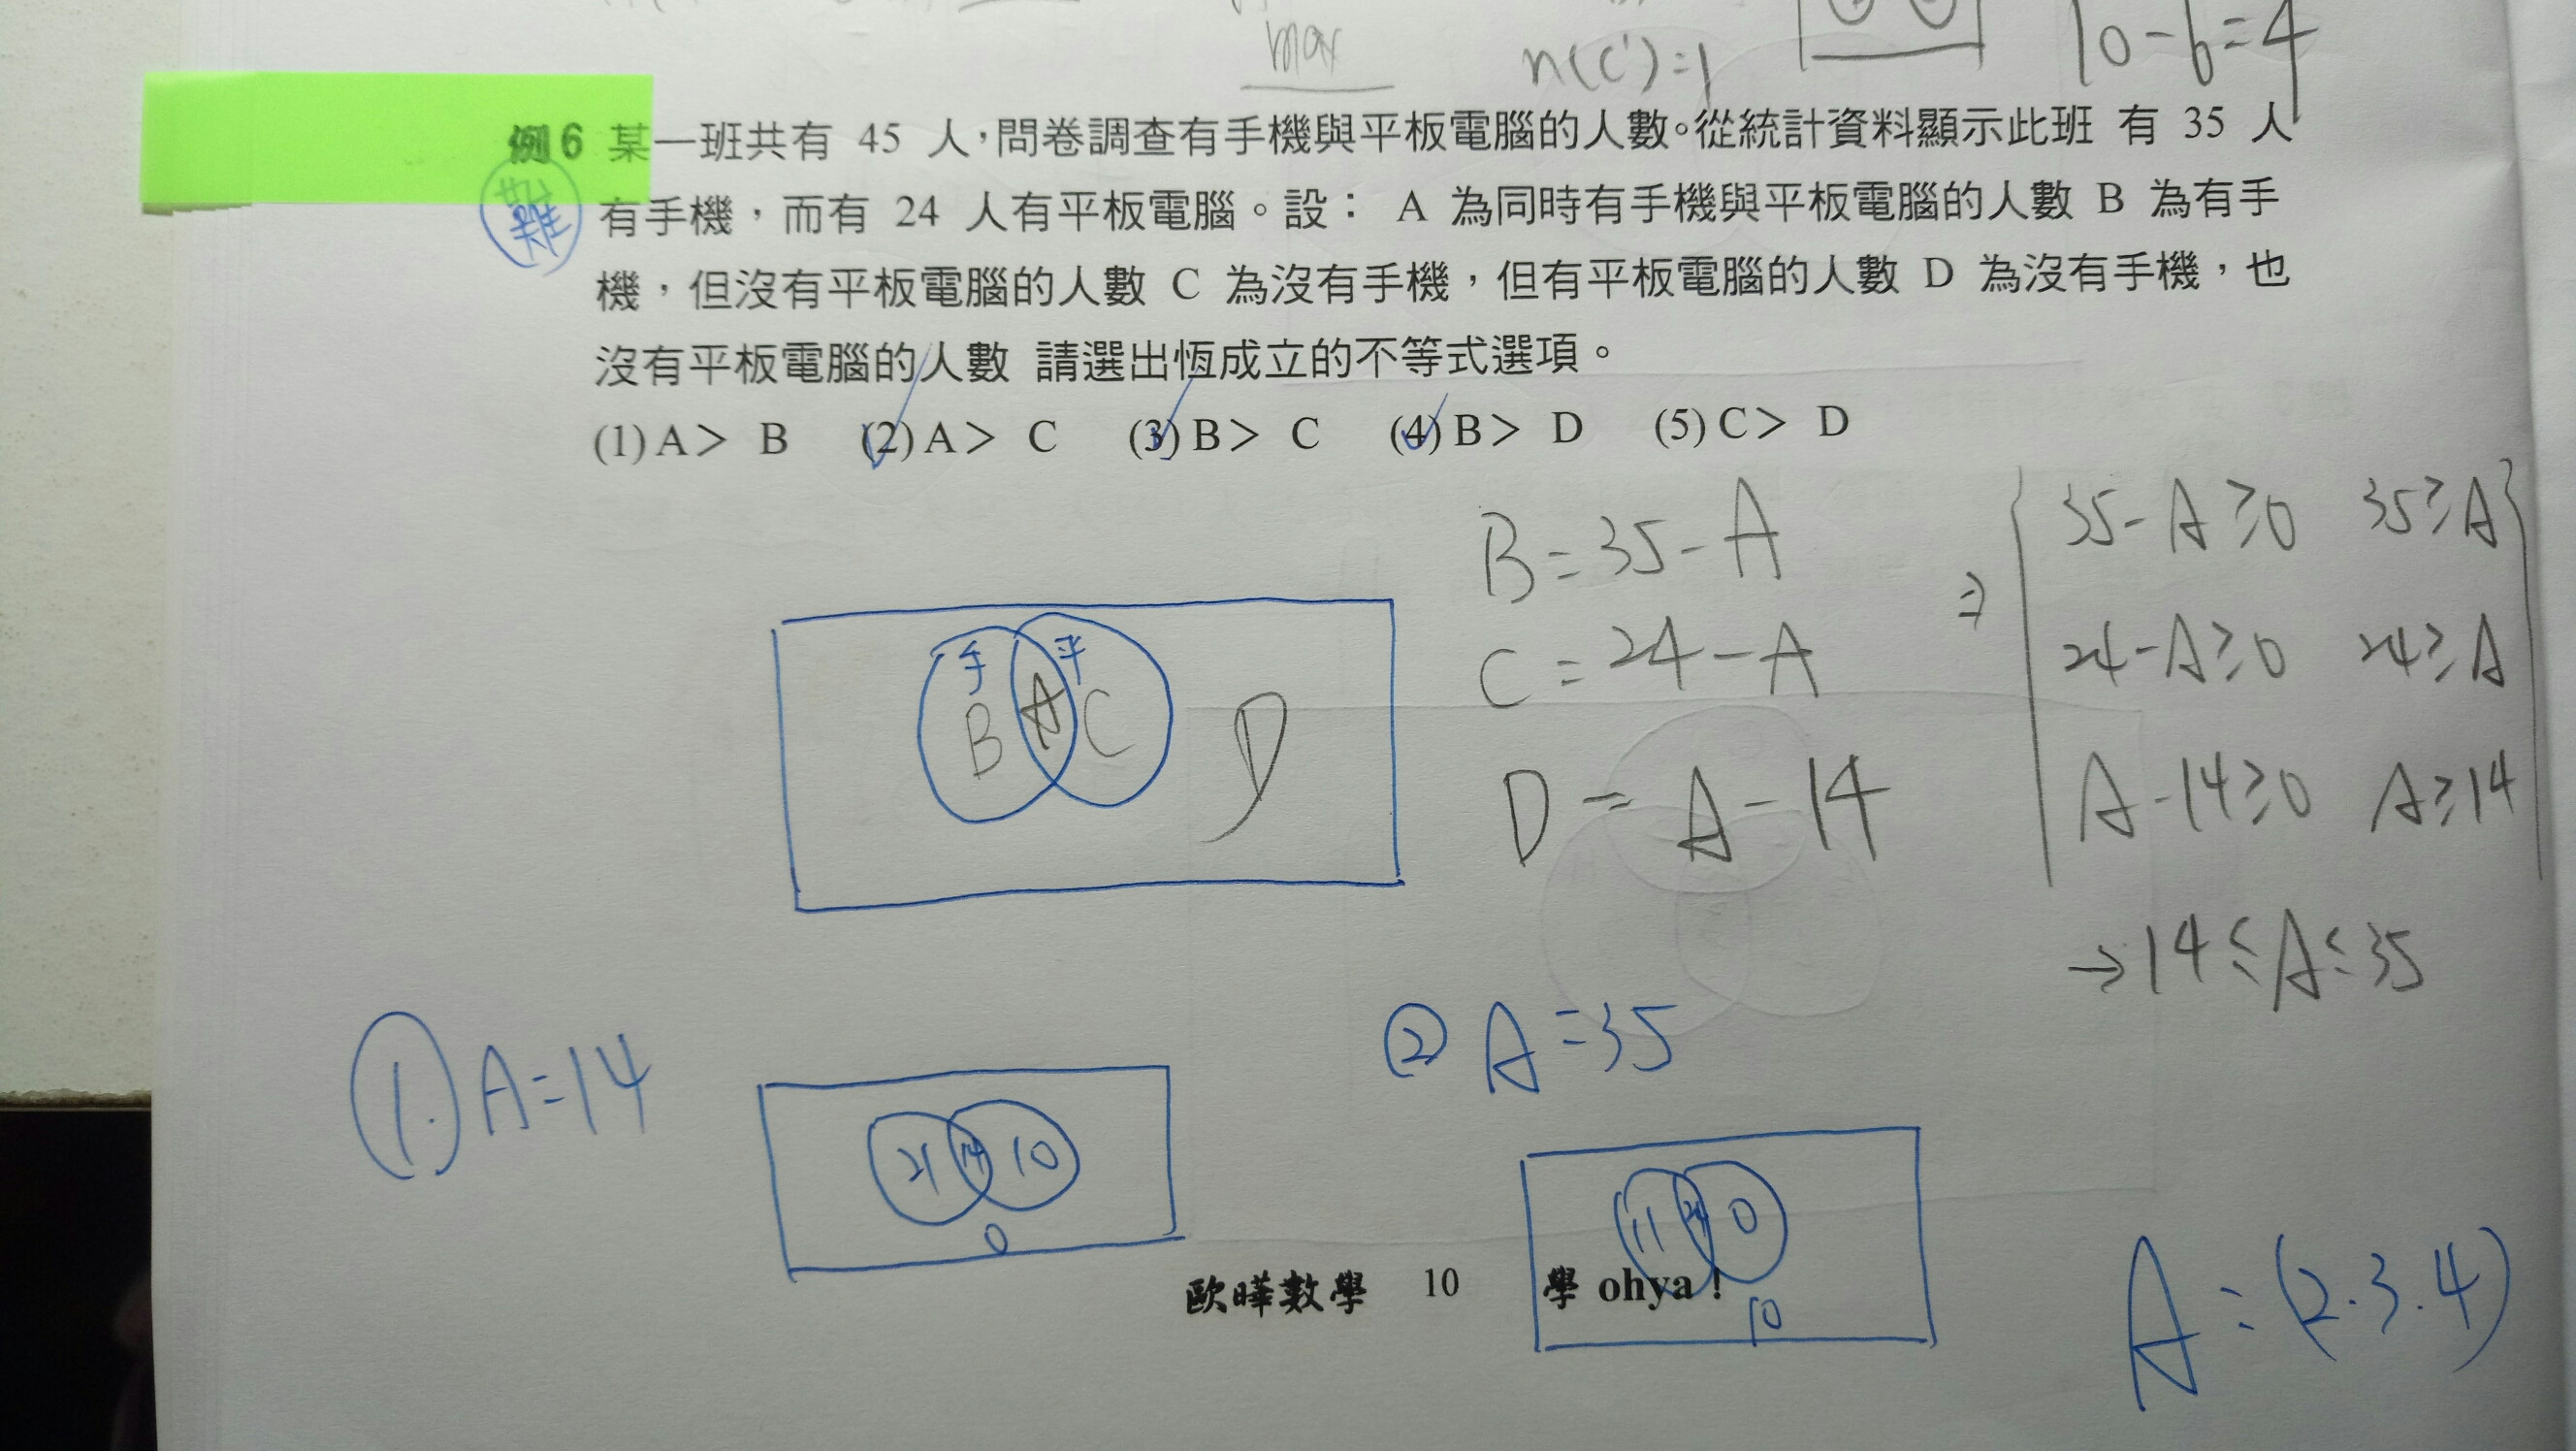 max
n(C')=1
10-6=4
例6 某一班共有 45 人，問卷調查有手機與平板電腦的人數。從統計資料顯示此班 有 35 人
難
有手機，而有 24 人有平板電腦。設： A 為同時有手機與平板電腦的人數 B 為有手
機，但沒有平板電腦的人數 C 為沒有手機，但有平板電腦的人數 D 為沒有手機，也
沒有平板電腦的人數 請選出恆成立的不等式選項。
(1) A＞ B (2) A＞ C (3) B＞ C (4) B＞ D (5) C＞ D
B=35-A
⇒ 35-A≥0 35≥A
C=24-A
24-A≥0 24≥A
D=A-14
A-14≥0 A≥14
→14≤A≤35
手 平
B A C D
① A=14
21 14 10
0
② A=35
11 24 0
10
A:(2.3.4)
歐曄數學 10 學 ohya！